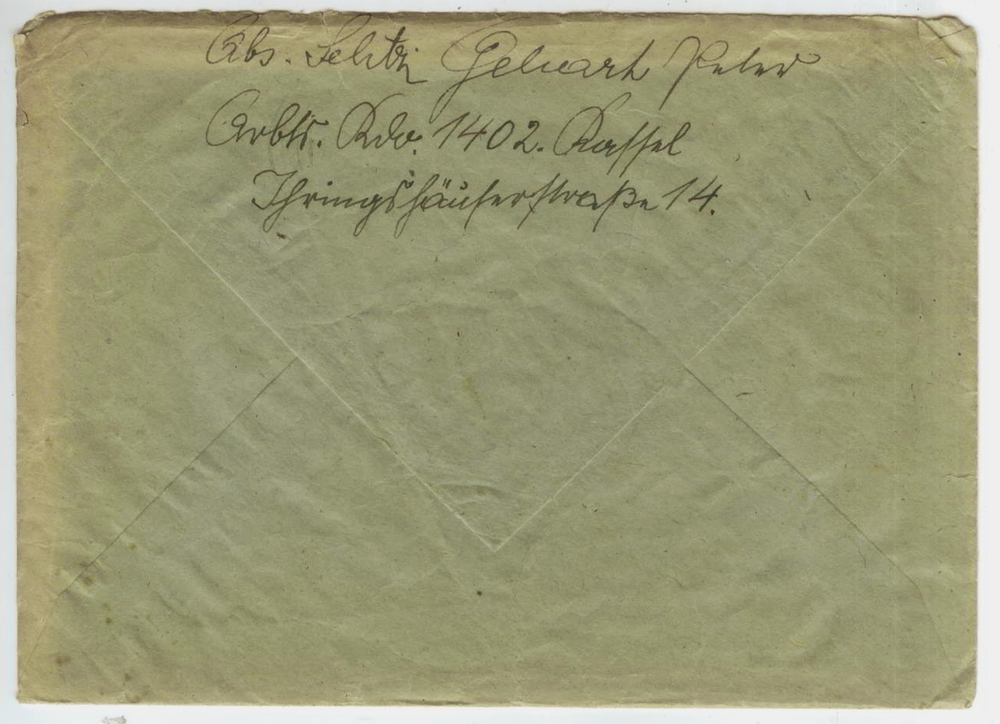 Abs. Schtz. Gelhart Peter
Arbts. Kdo. 1402. Kassel
Ihringshäuserstraße 14.